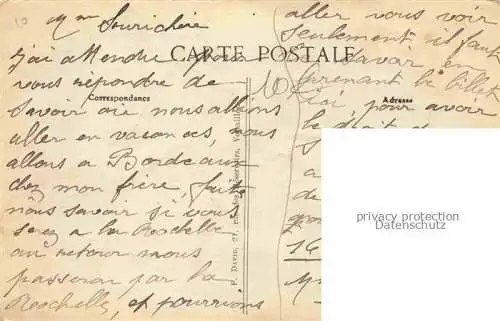 10
Mme Souricière
CARTE POSTALE
Correspondance
Adresse
j'ai attendu pour
vous répondre de
savoir où nous allions
aller en vacances, nous
allons a Bordeaux
chez mon frère, faite
nous savoir si vous
serez a la Rochelle
au retour nous
passeron par la
Rochelle, et pourrions
aller vous voir
seulement il faut
savoir en
prenant le billet
ici, pour avoir
le droit
a
de
16
E. David, 21, Versailles
privacy protection
Datenschutz